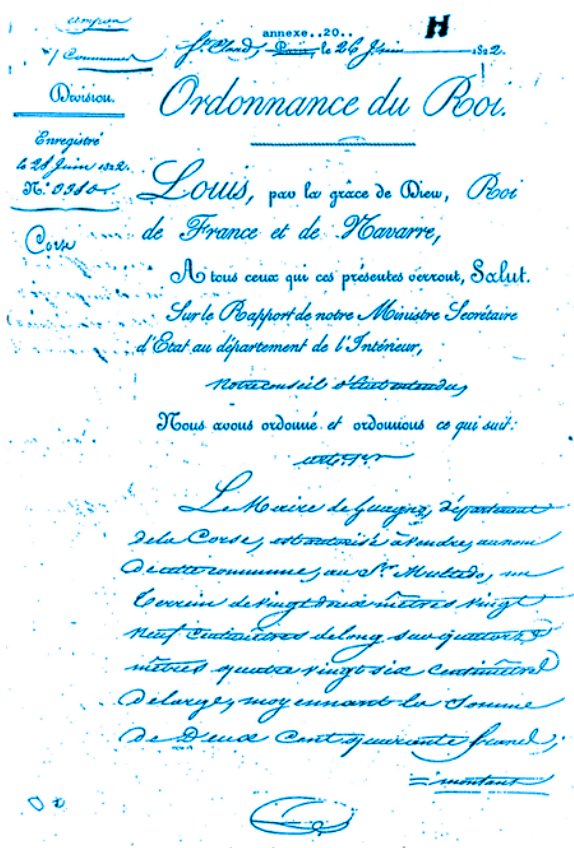 annexe..20..
H
St. Cloud, Paris, le 26 Juin 1822.
/ Communes
Division.
Ordonnance du Roi.
Enregistré
le 28 Juin 1822.
N.º
Louis, par la grâce de Dieu, Roi
de France et de Navarre,
Corse
A tous ceux qui ces présentes verront, Salut.
Sur le Rapport de notre Ministre Secrétaire
d'Etat au département de l'Intérieur,
Notre conseil d'Etat entendu,
Nous avons ordonné et ordonnons ce qui suit:
art. 1er
Le Maire de Guagno, département
de la Corse, est autorisé à vendre, au nom
de cette commune, au Sr. Multedo, un
terrein de vingt deux mètres vingt
neuf centimètres de long sur quatorze
mètres quatre vingt six centimètres
de large, moyennant la Somme
de Deux Cent quarante francs,
montant